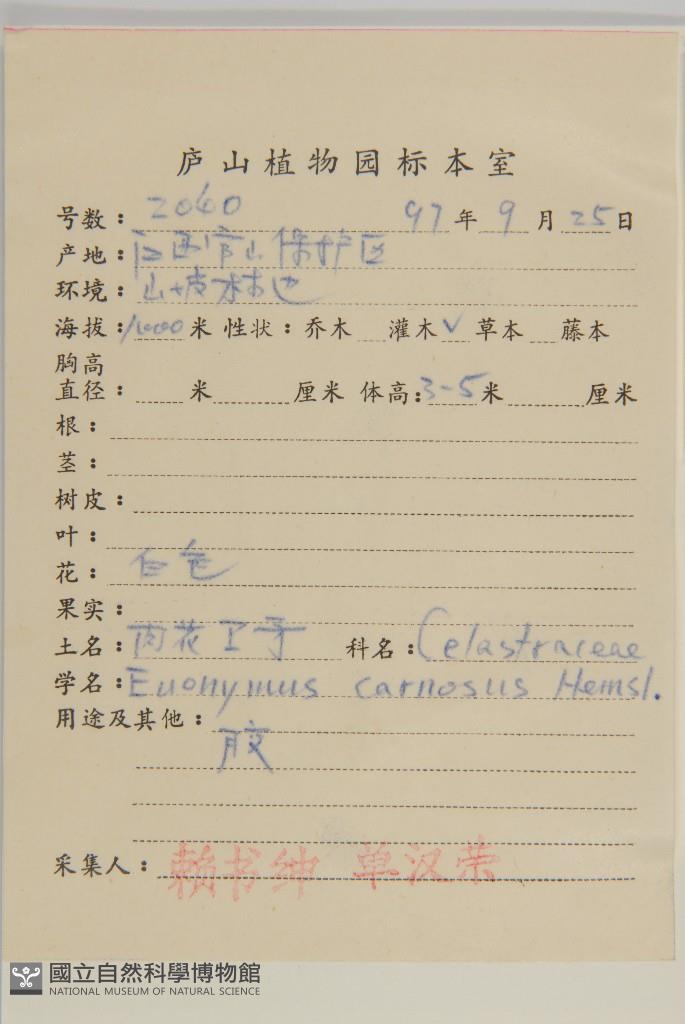 庐山植物园标本室
号数: 2040 97年9月25日
产地: 江西官山保护区
环境: 山坡林边
海拔: 1000米 性状: 乔木 灌木√ 草本 藤本
胸高
直径: 米 厘米 体高: 3-5米 厘米
根:
茎:
树皮:
叶:
花: 白色
果实:
土名: 肉花卫矛 科名: Celastraceae
学名: Euonymus carnosus Hemsl.
用途及其他:
胶
采集人: 赖书绅 单汉荣
國立自然科學博物館
NATIONAL MUSEUM OF NATURAL SCIENCE